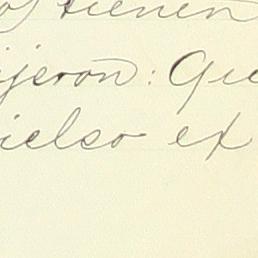 os tienen
ijeron: Que
ielso ex